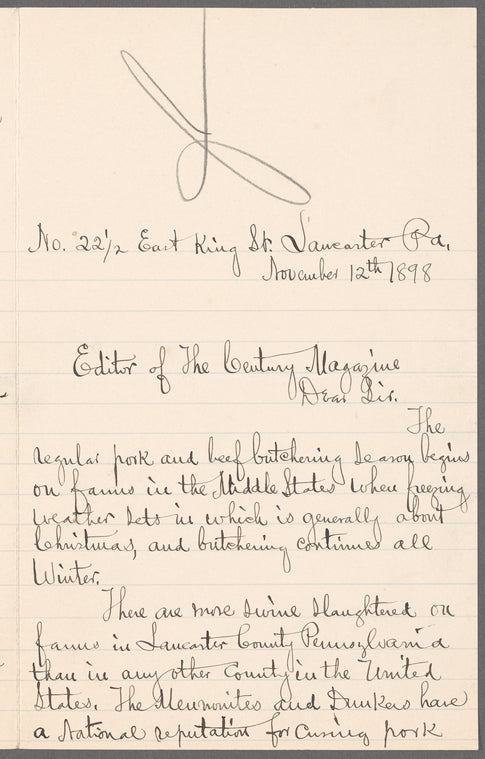 No. 22 1/2 East King St. Lancaster Pa.
November 12th 1898
Editor of The Century Magazine
Dear Sir.
The
regular pork and beef butchering season begins
on farms in the Middle States when freezing
weather sets in which is generally about
Christmas, and butchering continues all
Winter.
There are more swine slaughtered on
farms in Lancaster County Pennsylvania
than in any other County in the United
States. The Mennonites and Dunkers have
a National reputation for curing pork